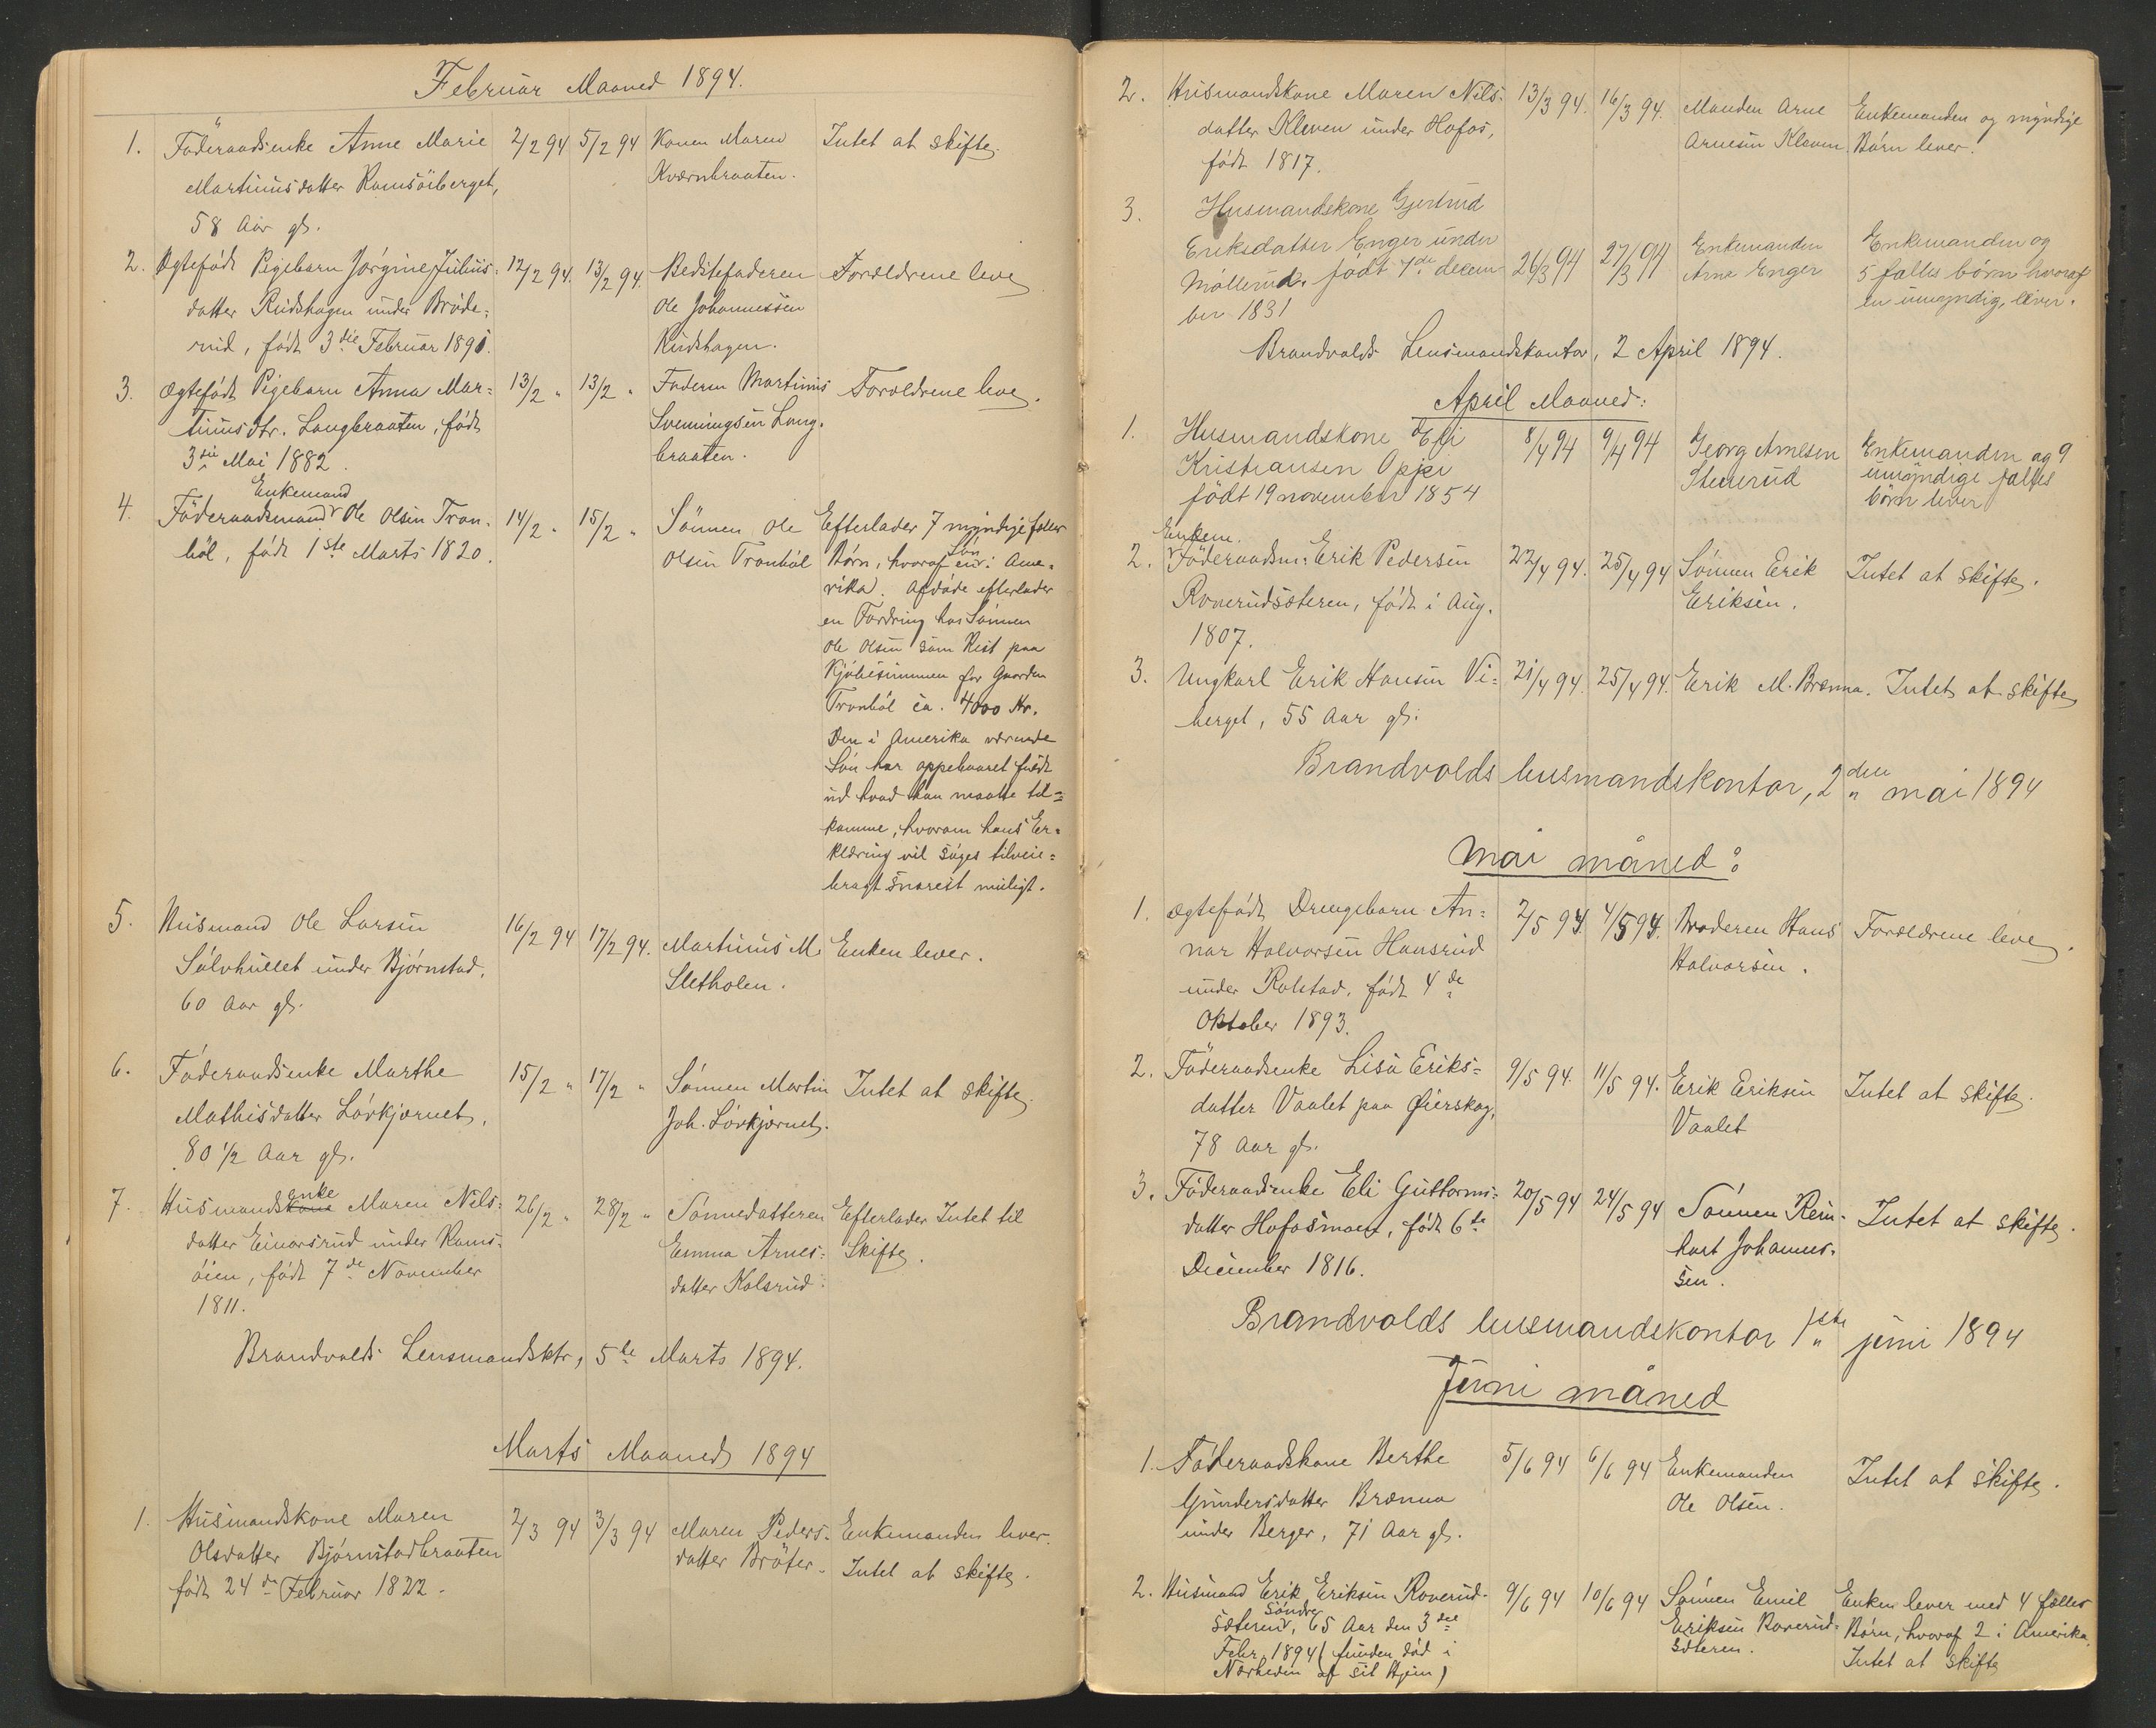 Februar Maaned 1894.
1. Föderaadsenke Anne Marie 2/2 94 5/2 94 Konen Maren Intet at skifte.
Martinusdatter Ramsöiberget, Kværnbraaten.
58 Aar gl.
2. Ægtefödt Pigebarn Jørgine Julius- 12/2 94. 13/2 94. Bedstefaderen Forældrene leve
datter Rudshagen under Bröde- Ole Johannessen
rud, födt 3die Februar 1891. Rudshagen.
3. Ægtefödt Pigebarn Anna Mar- 13/2 " 13/2 " Faderen Martinus Forældrene leve.
tinusdtr. Langbraaten, födt Svenningsen Lang-
3die Mai 1882. braaten.
Enkemand
4. Föderaadsmand Ole Olsen Tron- 14/2 " 15/2 " Sönnen Ole Efterlader 7 myndige fælles
böl, födt 1ste Marts 1820. Olsen Tronböl Børn, hvoraf en Sön i Ame-
rika. Afdöde efterlader
en Fordring hos Sönnen
Ole Olsen som Rest paa
Kjöbesummen for Gaarden
Tronböl ca. 4000 Kr.
Den i Amerika værende
Sön har oppebaaret fuldt
ud hvad han maatte til-
komme, hvorom hans Er-
klæring vil söges tilveie-
bragt snarest muligt.
5. Husmand Ole Larsen 16/2 94 17/2 94. Martinus M. Enken lever.
Sölvhullet under Bjørnstad, Sletholen.
60 Aar gl.
6. Föderaadsenke Marthe 15/2 " 17/2 " Sönnen Martin Intet at skifte.
Mathisdatter Lövkjærnet, Joh. Lövkjærnet.
80 1/2 Aar gl.
7. Husmandskone enke Maren Nils- 26/2 " 28/2 " Sönnedatteren Efterlader Intet til
datter Einarsrud under Rams- Emma Arnes- Skifte.
öien, födt 7de November datter Kolsrud.
1811.
Brandvolds Lensmandsktr, 5te Marts 1894.
Marts Maaned 1894
1. Husmandskone Maren 2/3 94 3/3 94 Maren Peders- Enkemanden lever.
Olsdatter Bjørnstadbraaten datter Bråter. Intet at skifte.
födt 24de Februar 1822.
2. Husmandskone Maren Nils- 13/3 94. 16/3 94. Manden Arne Enkemanden og myndige
datter Kleven under Hofos, Arnesen Kleven Børn lever.
födt 1817.
3. Husmandskone Gjertrud
Eriksdatter Enger under 26/3 94 27/3 94 Enkemanden Enkemanden og
Möllerud. födt 7de decem- Arne Enger 5 fælles börn hvoraf
ber 1831 en umyndig, lever.
Brandvolds Lensmandskontor, 2 April 1894.
April Maaned:
1. Husmandskone Eli 8/4 94 9/4 94 Georg Arnesen Enkemanden og 9
Kristiansen Oppi Stenerud umyndige fælles
födt 19 november 1854 börn lever
Enkem.
2. Föderaadsm: Erik Pedersen 22/4 94. 25/4 94 Sönnen Erik Intet at skifte.
Roverudsæteren, födt i Aug. Eriksen.
1807.
3. Ungkarl Erik Hansen Vi- 21/4 94. 25/4 94. Erik M. Brænna. Intet at skifte
berget, 55 Aar gl.
Brandvolds lensmandskontor, 2den mai 1894
mai måned:
1. Ægtefödt Drengebarn An- 2/5 94 4/5 94. Broderen Hans Forældrene leve.
nar Halvorsen Hansrud Halvorsen.
under Rolstad, födt 4de
Oktober 1893.
2. Föderaadsenke Lisa Eriks- 9/5 94. 11/5 94. Erik Eriksen Intet at skifte.
datter Vaalet paa Øierskog, Vaalet
78 Aar gl.
3. Föderaadsenke Eli Guttorms- 20/5 94 24/5 94 Sönnen Rein- Intet at skifte.
datter Hofosmoen, födt 6te hart Johannes-
December 1816. sen.
Brandvolds lensmandskontor 1ste juni 1894
Juni måned
1. Föderaadskone Berthe 5/6 94 6/6 94 Enkemanden Intet at skifte.
Gundersdatter Brænna Ole Olsen.
under Berger, 71 Aar gl.
2. Husmand Erik Eriksen Roverud- 9/6 94 10/6 94 Sönnen Emil Enken lever med 4 fælles
sæteren söndre, 65 Aar den 3die Eriksen Roverud- Børn, hvoraf 2 i Amerika,
Febr. 1894 (funden död i sæteren. Intet at skifte
Nærheden af sit Hjem)